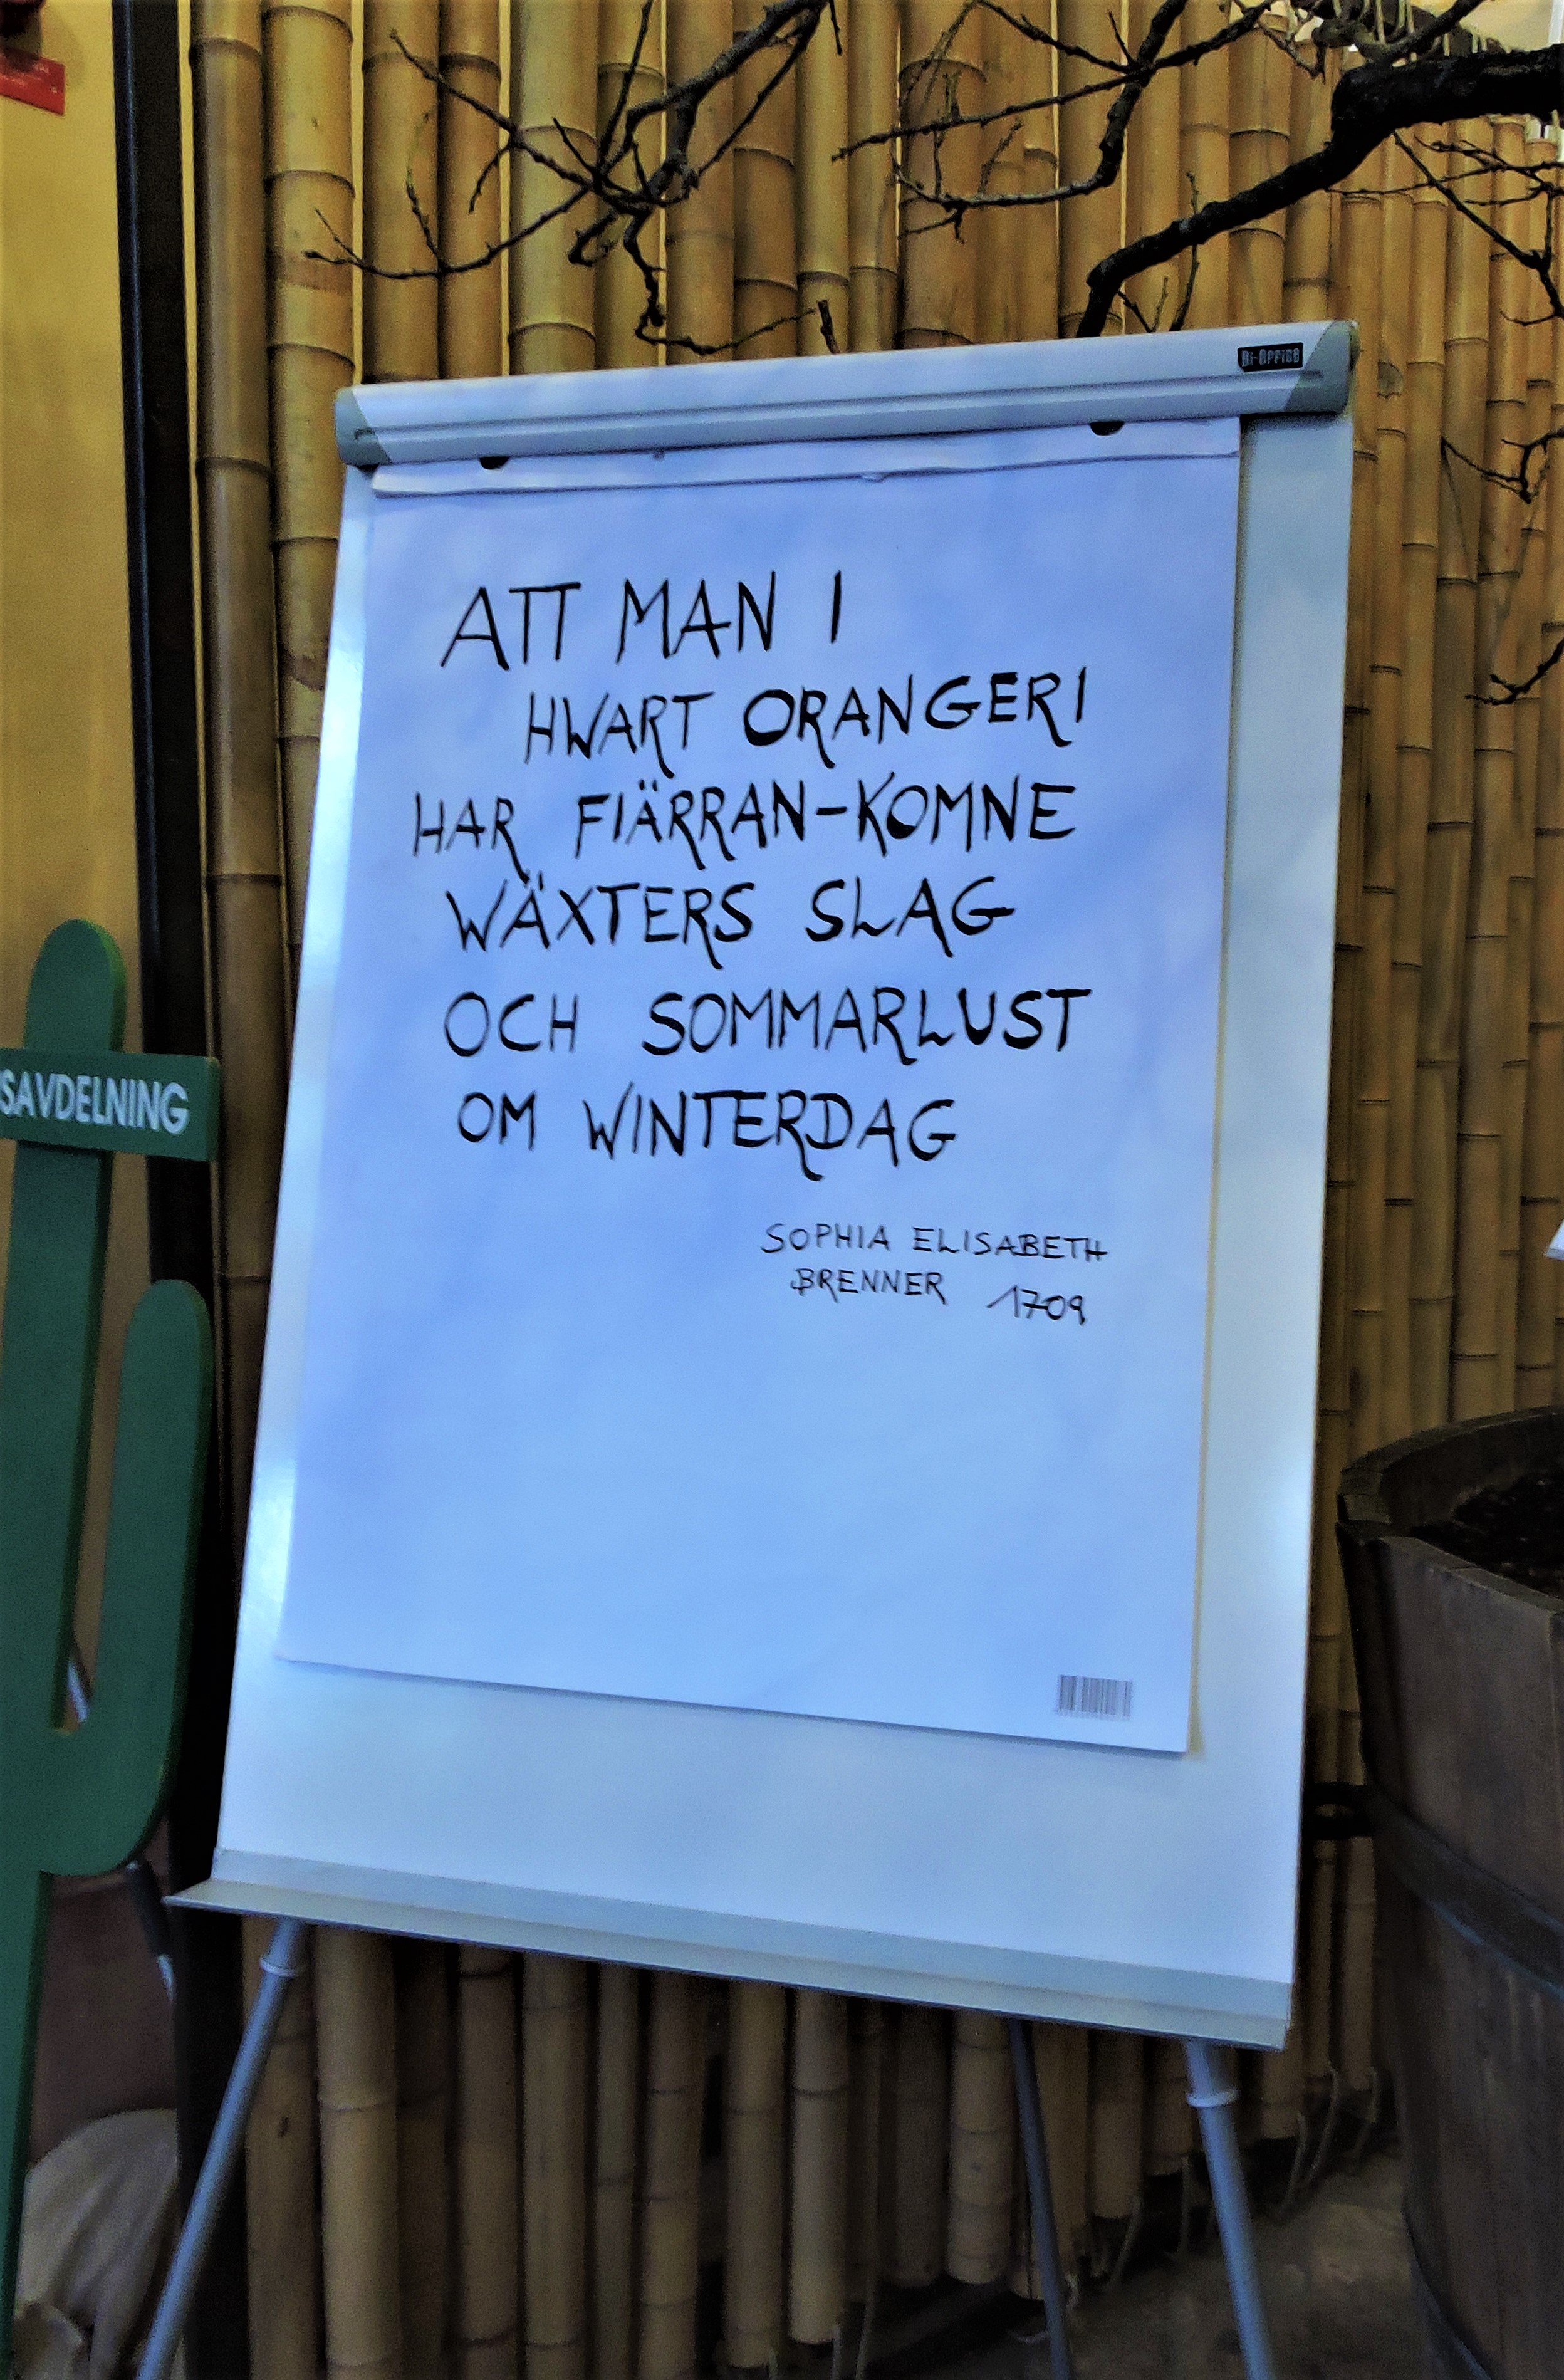 Bi-OFFiCE
ATT MAN I
HWART ORANGERI
HAR FIÄRRAN-KOMNE
WÄXTERS SLAG
OCH SOMMARLUST
OM WINTERDAG
SOPHIA ELISABETH
BRENNER 1709
SAVDELNING